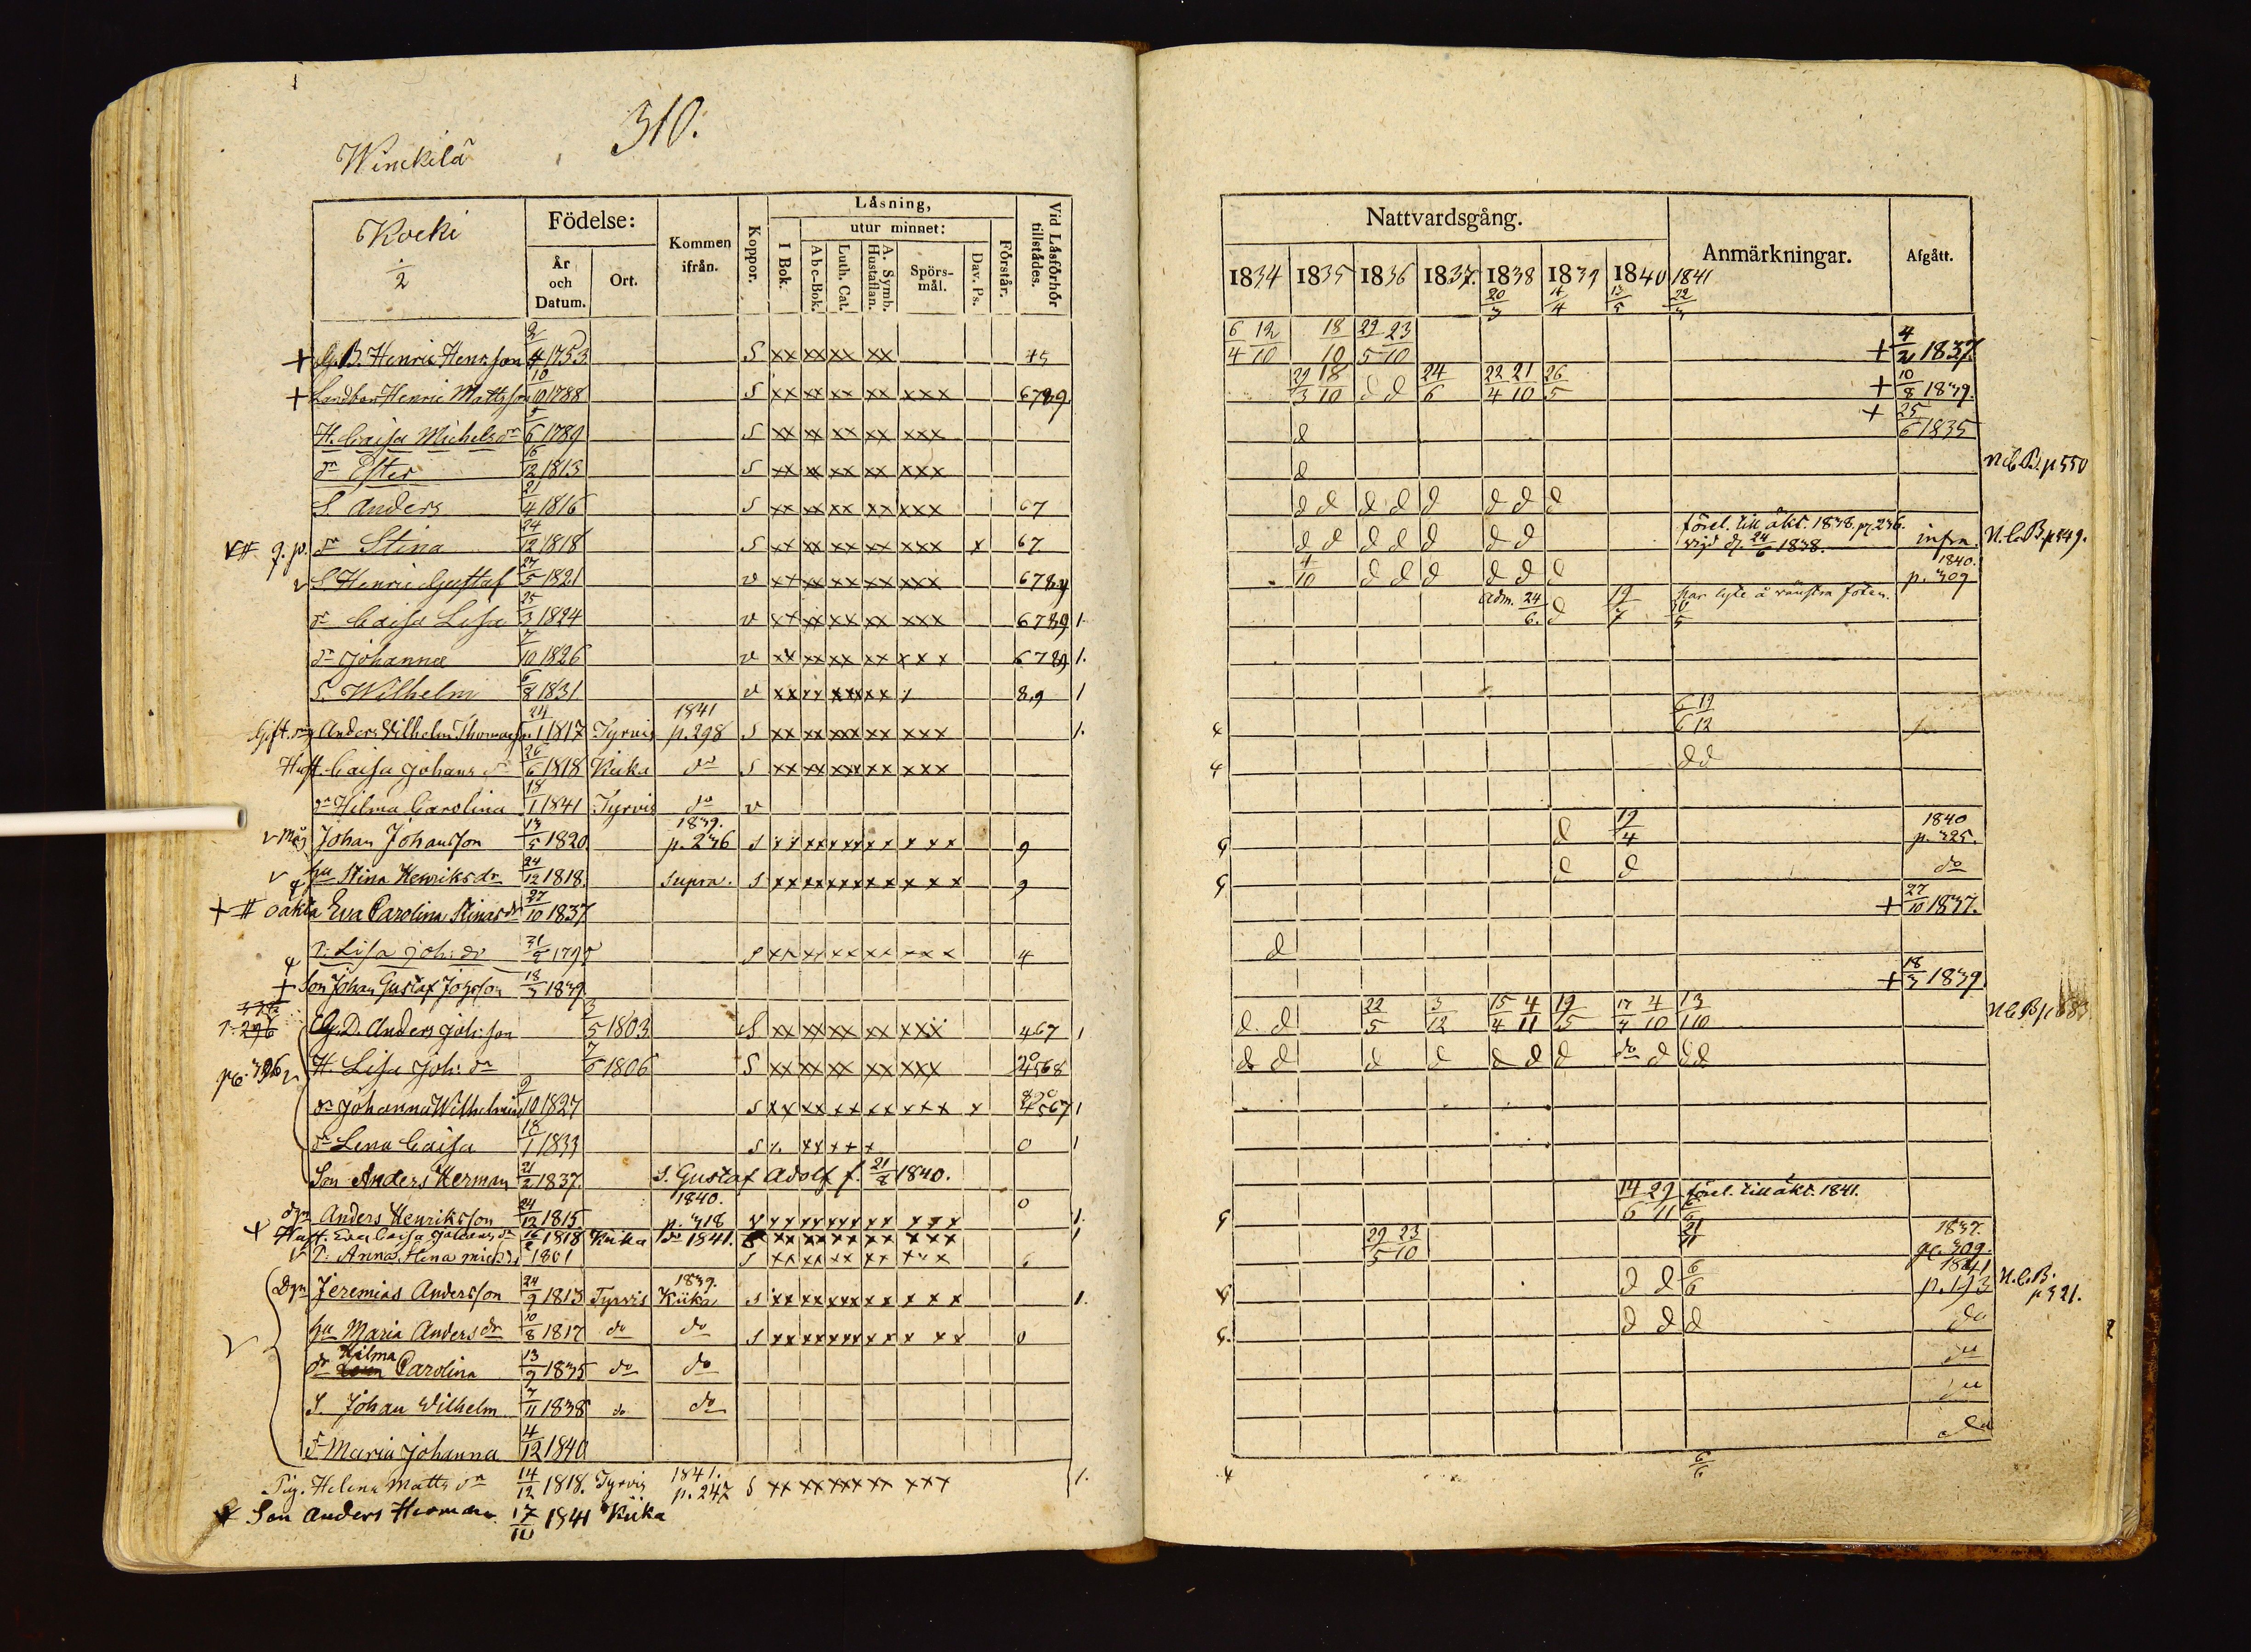 310.
Winckilä
Kocki
2
Födelse:
År och Datum.
Ort.
Kommen ifrån.
Koppor.
Läsning,
I Bok.
utur minnet:
Abc-Bok.
Luth. Cat.
A. Symb. Hustaflan.
Spörs-mål.
Dav. Ps.
Förstår.
Vid Läsförhör tillstädes.
G.B. Henric Henrsson 2/4 1753 S xx xx xx xx 45
+ Landbon Henric Mattsson 10/10 1788 S xx xx xx xx xxx 6789
H. Caisa Michelsdr 5/6 1789 S xx xx xx xx xxx
dr Ester 16/12 1813 S xx xx xx xx xxx
S. Anders 21/4 1816 S xx xx xx xx xxx 67
q. p. dr Stina 24/12 1818 S xx xx xx xx xxx x 67
S. Henric Gustaf 27/5 1821 v xx xx xx xx xxx 6789
dr Caisa Lisa 25/3 1824 v xx xx xx xx xxx 6789 1.
dr Johanna 7/10 1826 v xx xx xx xx xxx 6789 1.
S. Wilhelm 6/8 1831 v xx xx xxx xx x 8.9 1
Anders Wilhelm Thomasson 24/1 1817 Tyrvis 1841 p. 298 S xx xx xxx xx xxx 1.
Hust. Caisa Johansdr 26/6 1818 Kiika do S xx xx xxx xx xxx
dr Hilma Carolina 18/1 1841 Tyrvis do v
Johan Johansson 13/5 1820 1839. p. 236 S xx xx xx xx xxx 9
hu Stina Henriksdr 24/12 1818. supra. S xx xx xx xx xxx 9
+ # oäkta Eva Carolina Stinasdr 27/10 1837
P. Lisa Joh: dr S xx xx xx xx xxx 4
+ Son Johan Gustaf Johsson 18/3 1839.
Anders Joh: son 3/5 1803 S xx xx xx xx xxx 467 1
H. Lisa Joh: dr 7/6 1806 S xx xx xx xx xxx
dr Johanna Wilhelmina 2/10 1827 S xx xx xx xx xxx x 4567 1
dr Lena Caisa 18/1 1833 0 1
Son Anders Herman 21/2 1837. S. Gustaf Adolf f. 21/8 1840.
dgn Anders Henriksson 24/12 1815 1840. p. 318 v xx xx xx xx xxx 0 1.
Hust. Eva Caisa 16/2 1818 Kiika do 1841. 1
P. Anna Stina 1801 S xx xx xx xx xxx 6
Dgn Jeremias Andersson 24/9 1813 Tyrvis 1839. Kiika S xx xx xxx xx xxx 1.
hu Maria Andersdr 10/8 1817 do do S xx xx xx xx xxx 0
dr Hilma Carolina 13/9 1835 do do
S. Johan Wilhelm 7/11 1838 do do
dr Maria Johanna 4/12 1840
Pig. Helena Mattsdr 14/12 1818. Tyrvis 1841. p. 247 S xx xx xxx xx xxx 1.
Son Anders Herman 17/10 1841 Kiika
Nattvardsgång.
Anmärkningar.
Afgått.
1834 1835 1836 1837. 1838 1839 1840 1841
20/3 4/4 13/5 22/3
6/4 12/10 18/10 29/5 23/10 + 4/2 1837.
29/3 18/10 d d 24/6 22/4 21/10 26/5 + 10/8 1839.
d + 25/6 1835
d N.C.B. p 550
d d d d d d d d
d d d d d d d förel. till äkt. 1838. pg. 236. vigd d. 24/6 1838. infra. N.C.B. p 549.
4/10 d d d d d d 1840. p. 309
adm. 24/6. d 19/7 har lyte å vänstra foten.
6/6 19/12
d d
d 19/4 1840 p. 325.
d d do
+ 27/10 1837.
d
+ 18/3 1839
d. d 22/5 3/12 15/4 4/11 19/5 17/4 4/10 13/10
d d d d d d d do d d d
14/6 29/11 förel. till äkt. 1841. 6/6
29/5 23/10 21/11 1837. p. 309.
d d 6/6 1841 p. 193 N.C.B. p 321.
d d d do
do
do
do
6/6